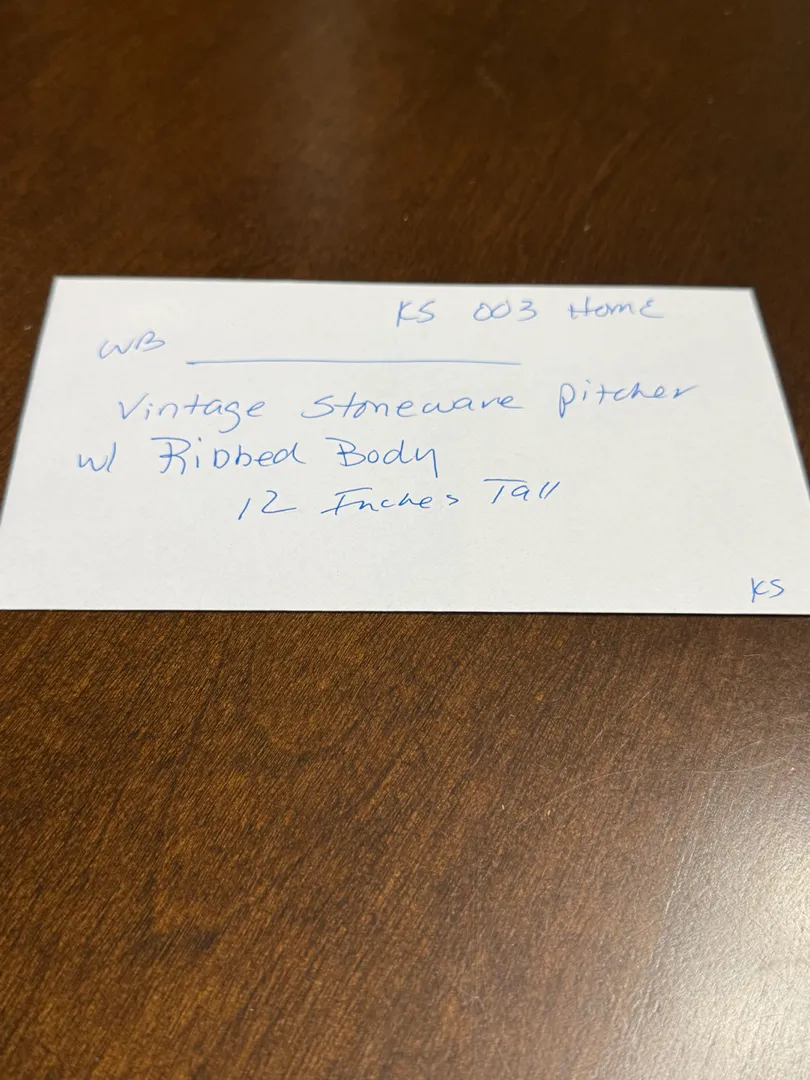 KS 003 Home
WB
Vintage Stoneware pitcher
w/ Ribbed Body
12 Inches Tall
KS